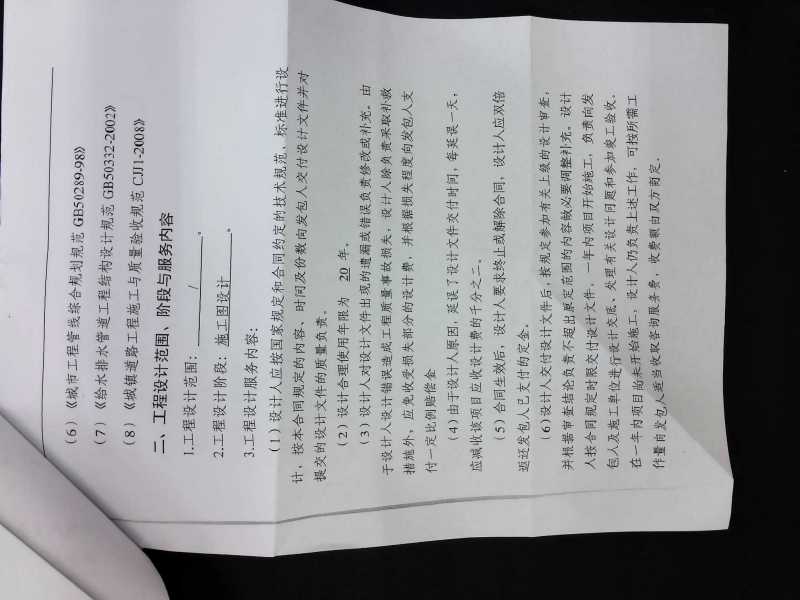 （6）《城市工程管线综合规划规范 GB50289-98》
（7）《给水排水管道工程结构设计规范 GB50332-2002》
（8）《城镇道路工程施工与质量验收规范 CJJ1-2008》
二、工程设计范围、阶段与服务内容
1.工程设计范围： / 。
2.工程设计阶段：施工图设计。
3.工程设计服务内容：
（1）设计人应按国家规定和合同约定的技术规范、标准进行设
计，按本合同规定的内容、时间及份数向发包人交付设计文件并对
提交的设计文件的质量负责。
（2）设计合理使用年限为 20 年。
（3）设计人对设计文件出现的遗漏或错误负责修改或补充。由
于设计人设计错误造成工程质量事故损失，设计人除负责采取补救
措施外，应免收受损失部分的设计费，并根据损失程度向发包人支
付一定比例赔偿金
（4）由于设计人原因，延误了设计文件交付时间，每延误一天，
应减收该项目应收设计费的千分之二。
（5）合同生效后，设计人要求终止或解除合同，设计人应双倍
返还发包人已支付的定金。
（6）设计人交付设计文件后，按规定参加有关上级的设计审查，
并根据审查结论负责不超出原定范围的内容做必要调整补充。设计
人按合同规定时限交付设计文件，一年内项目开始施工，负责向发
包人及施工单位进行设计交底、处理有关设计问题和参加竣工验收。
在一年内项目尚未开始施工，设计人仍负责上述工作，可按所需工
作量向发包人适当收取咨询服务费，收费额由双方商定。